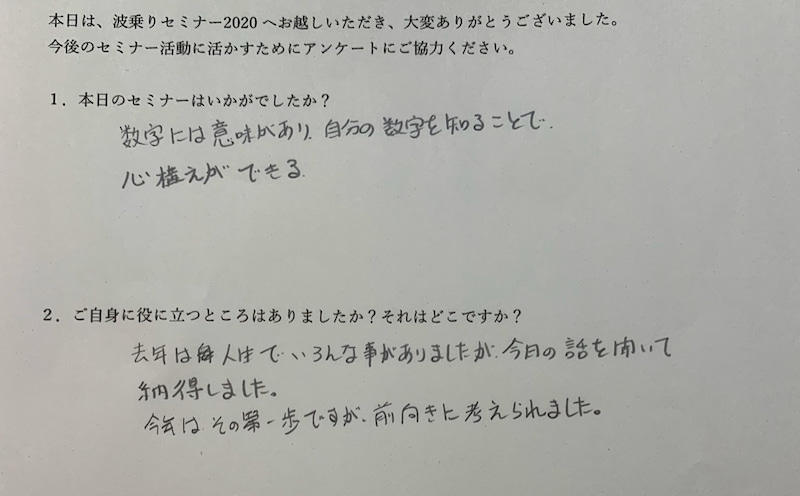 本日は、波乗りセミナー2020 へお越しいただき、大変ありがとうございました。
今後のセミナー活動に活かすためにアンケートにご協力ください。
1．本日のセミナーはいかがでしたか？
数字には意味があり、自分の数字を知ることで、
心構えができる。
2．ご自身に役に立つところはありましたか？それはどこですか？
去年は 人生で いろんな事がありましたが、今日の話を聞いて
納得しました。
今年は、その第一歩ですが、前向きに考えられました。